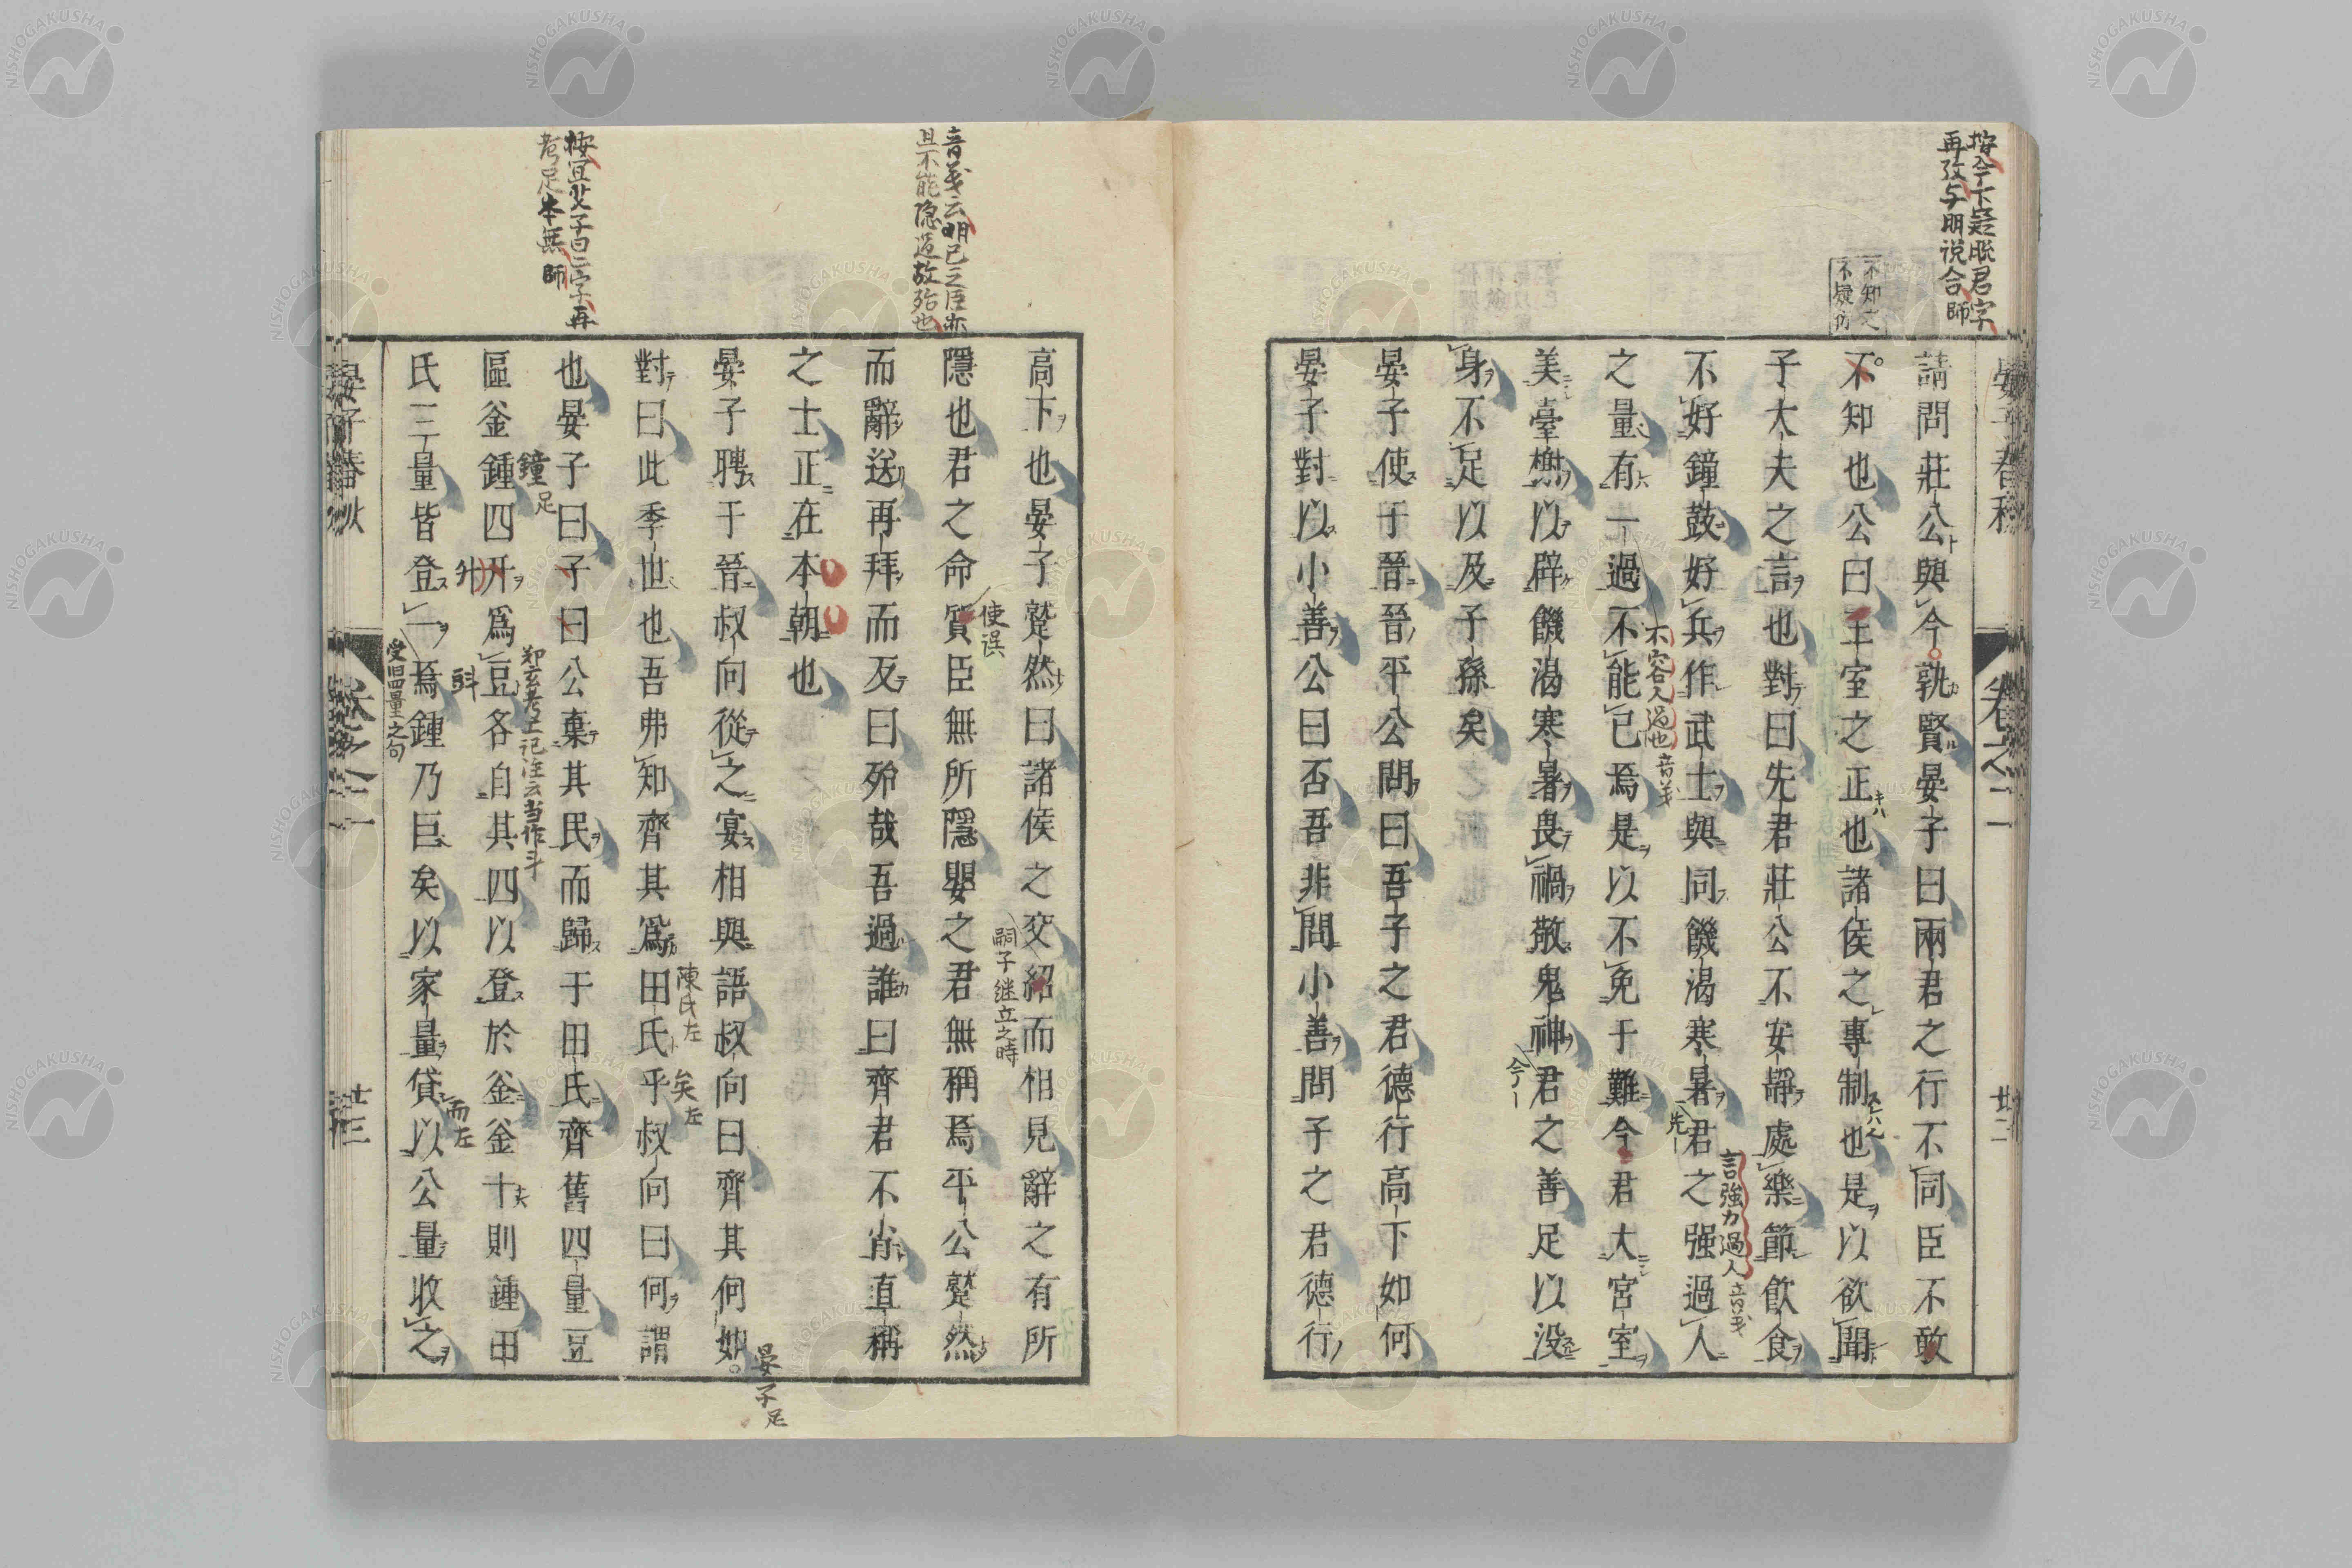 請問莊公與今孰賢晏子曰兩君之行不同臣不敢
不知也公曰王室之正也諸侯之專制也是以欲聞
子大夫之言也對曰先君莊公不安靜處樂節飲食
不好鐘鼓好兵作武士與同饑渴寒暑君之强過人
之量有一過不能已焉是以不免于難今君大宮室
美臺榭以辟饑渴寒暑畏禍敬鬼神君之善足以没
身不足以及子孫矣
晏子使于晉晉平公問曰吾子之君德行高下如何
晏子對以小善公曰否吾非問小善問子之君德行
按今下疑脫君字
再攷与明说合師
不知之
不疑仿
不容人過也音義
言強力過人音義
先一
今一
卷之二
高下也晏子蹵然曰諸侯之交紹而相見辭之有所
隱也君之命質臣無所隱嬰之君無稱焉平公蹵然
而辭送再拜而反曰殆哉吾過誰曰齊君不肖直稱
之士正在本朝也
晏子聘于晉叔向從之宴相與語叔向曰齊其何如
對曰此季世也吾弗知齊其爲田氏乎叔向曰何謂
也晏子曰子曰公棄其民而歸于田氏齊舊四量豆
區釜鍾四升爲豆各自其四以登於釜釜十則鍾田
氏三量皆登一焉鍾乃巨矣以家量貸以公量收之
音義云明己之臣亦
且不能隱過故殆也
按宜父子曰二字再
考足本無師
使誤
嗣子継立之時
晏子足
陳氏左
矣左
鐘足
升
鄭玄考工记注云当作斗
斞
受旧四量之句
而左
晏子春秋
卷之二